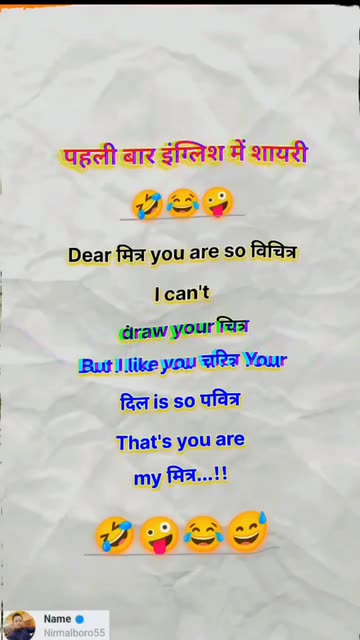 पहली बार इंग्लिश में शायरी
🤣😂🤪
Dear मित्र you are so विचित्र
I can't
draw your चित्र
But I like you चरित्र Your
दिल is so पवित्र
That's you are
my मित्र...!!
🤣🤪😂😅
Name
Nirmalboro55